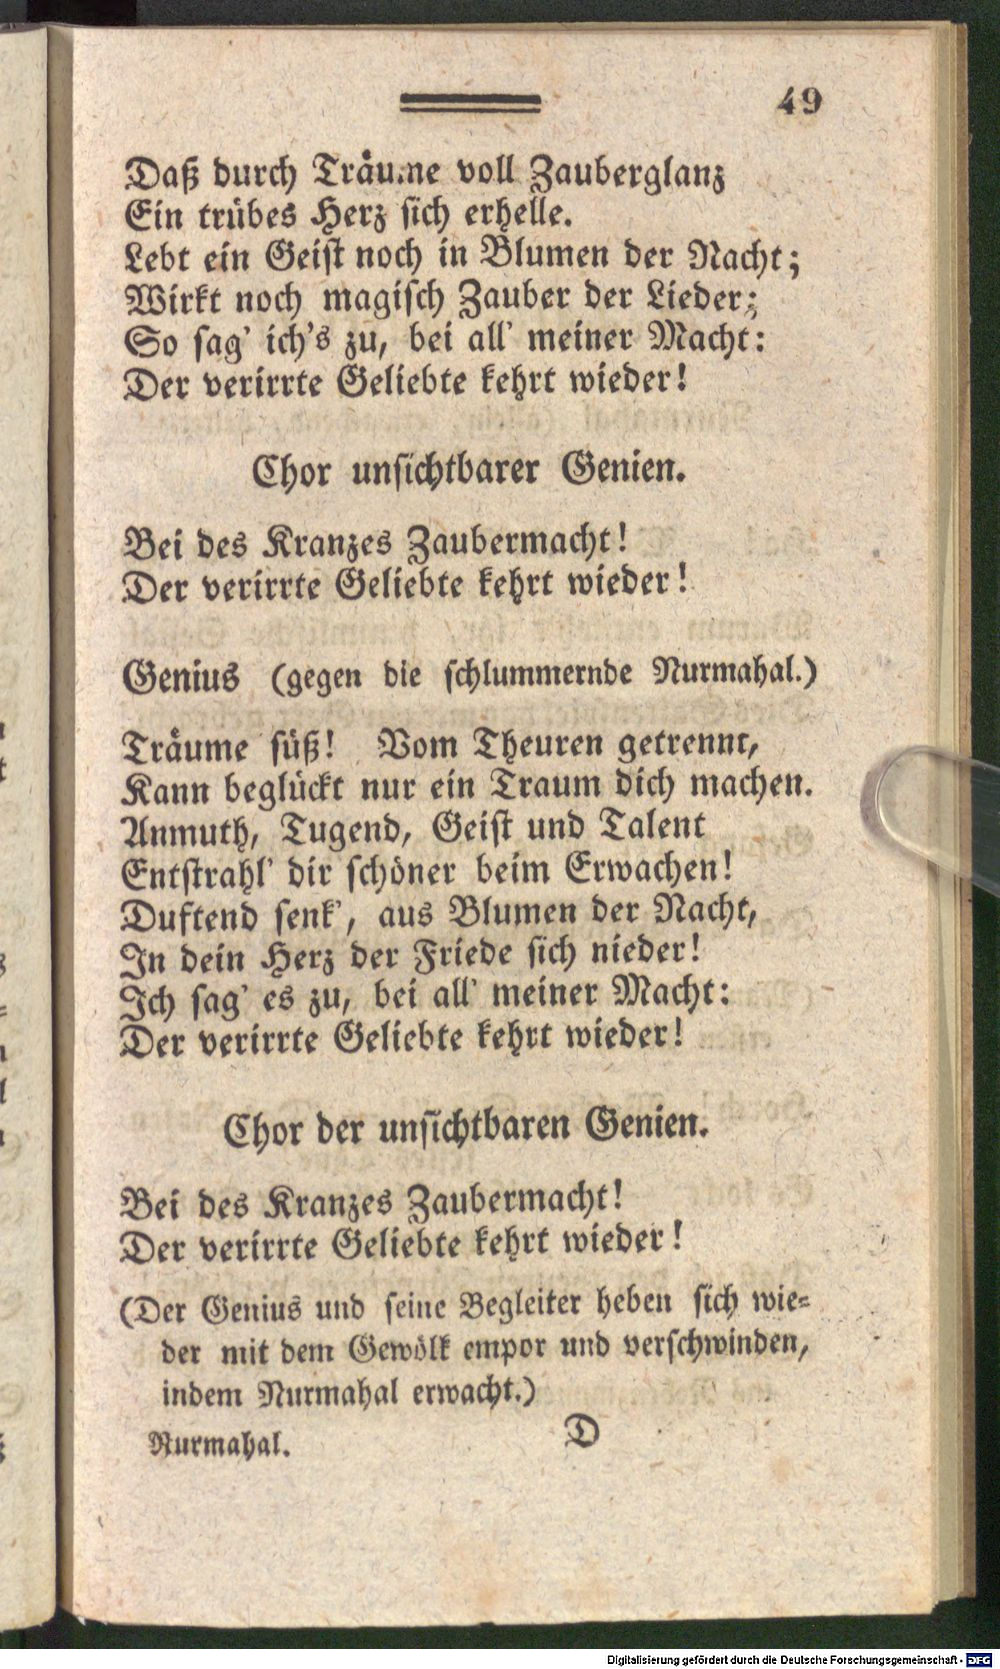 49
Daß durch Träume voll Zauberglanz
Ein trübes Herz sich erhelle.
Lebt ein Geist noch in Blumen der Nacht;
Wirkt noch magisch Zauber der Lieder;
So sag' ich's zu, bei all' meiner Macht:
Der verirrte Geliebte kehrt wieder!
Chor unsichtbarer Genien.
Bei des Kranzes Zaubermacht!
Der verirrte Geliebte kehrt wieder!
Genius (gegen die schlummernde Nurmahal.)
Träume süß! Vom Theuren getrennt,
Kann beglückt nur ein Traum dich machen.
Anmuth, Tugend, Geist und Talent
Entstrahl' dir schöner beim Erwachen!
Duftend senk', aus Blumen der Nacht,
In dein Herz der Friede sich nieder!
Ich sag' es zu, bei all' meiner Macht:
Der verirrte Geliebte kehrt wieder!
Chor der unsichtbaren Genien.
Bei des Kranzes Zaubermacht!
Der verirrte Geliebte kehrt wieder!
(Der Genius und seine Begleiter heben sich wie=
der mit dem Gewölk empor und verschwinden,
indem Nurmahal erwacht.)
Nurmahal. D
Digitalisierung gefördert durch die Deutsche Forschungsgemeinschaft - DFG